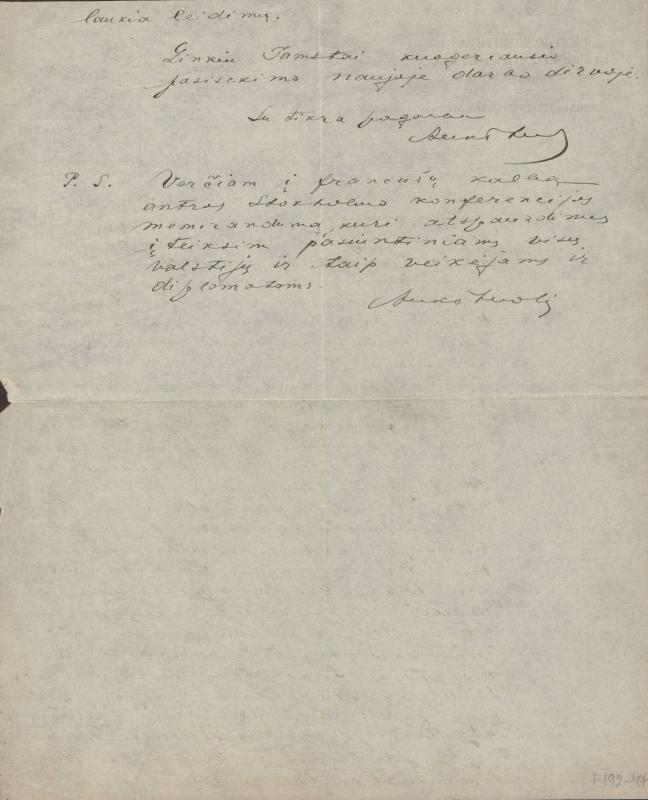 laukia leidimų.
Linkiu Tamstai kuogeriausio
pasisekimo naujoje darbo dirvoje.
Su tikra pagarba
P. S. Verčiam į francušų kalbą
antros Stokholmo konferencijos
memorandumą, kurį atspauzdinus
įteiksim pasiuntiniams visų
valstijų ir taip veikėjams ir
diplomatams.
F192-